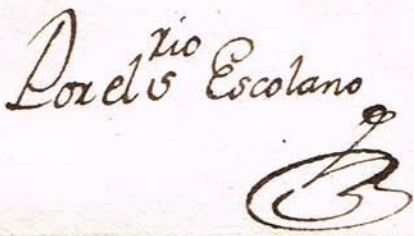 Por el S.rio Escolano